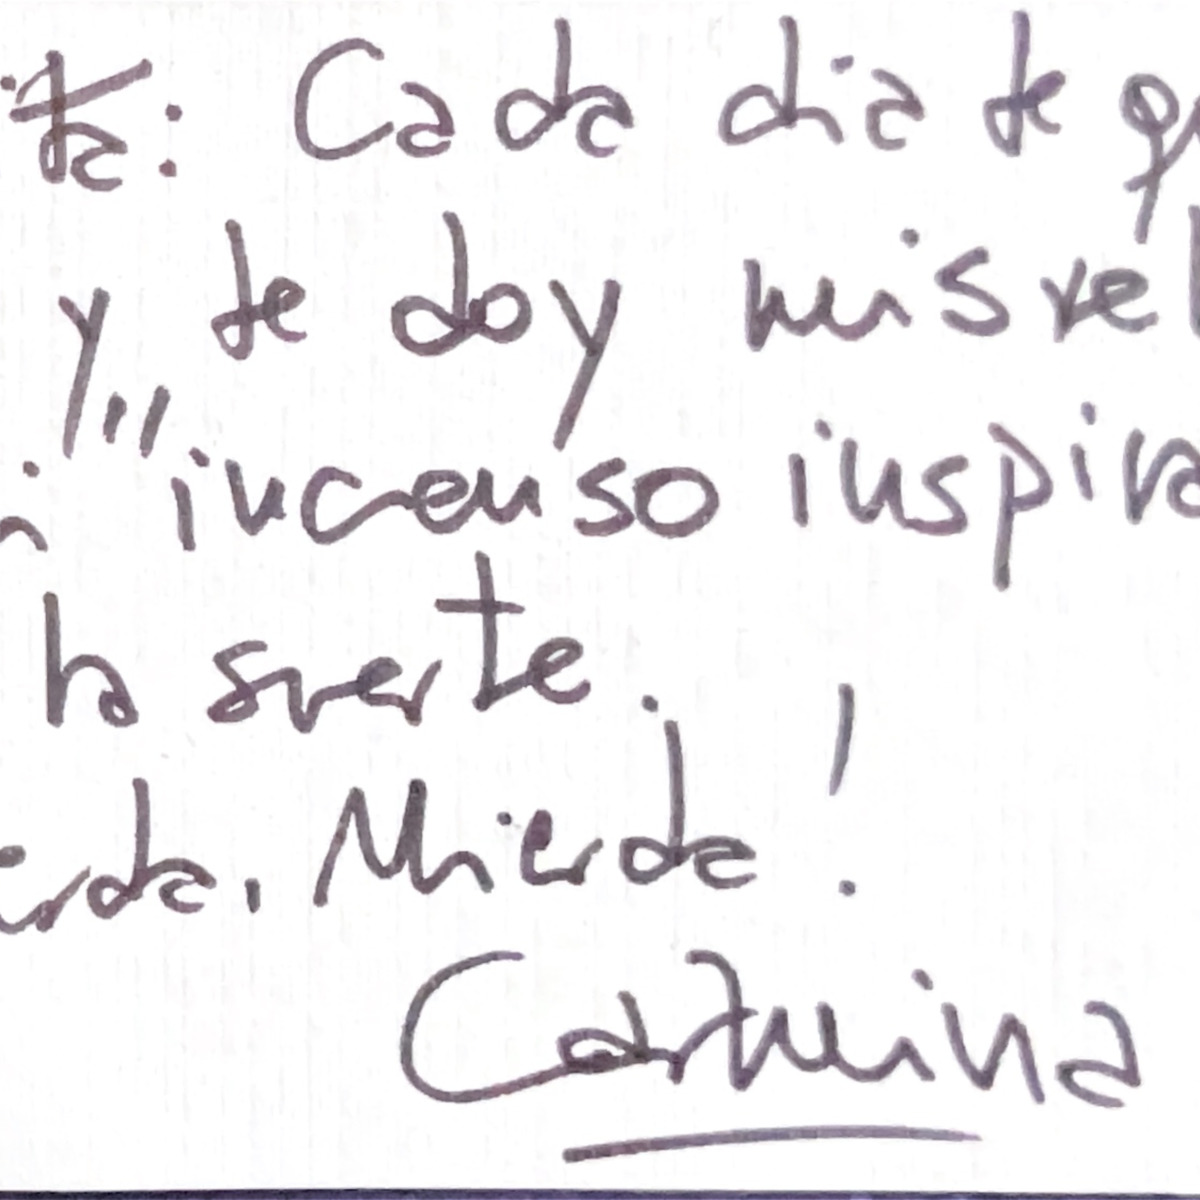 ita: Cada dia te qu
y te doy mis vel
mi "incenso inspira
la suerte.
ierda, Mierda!
Carmina